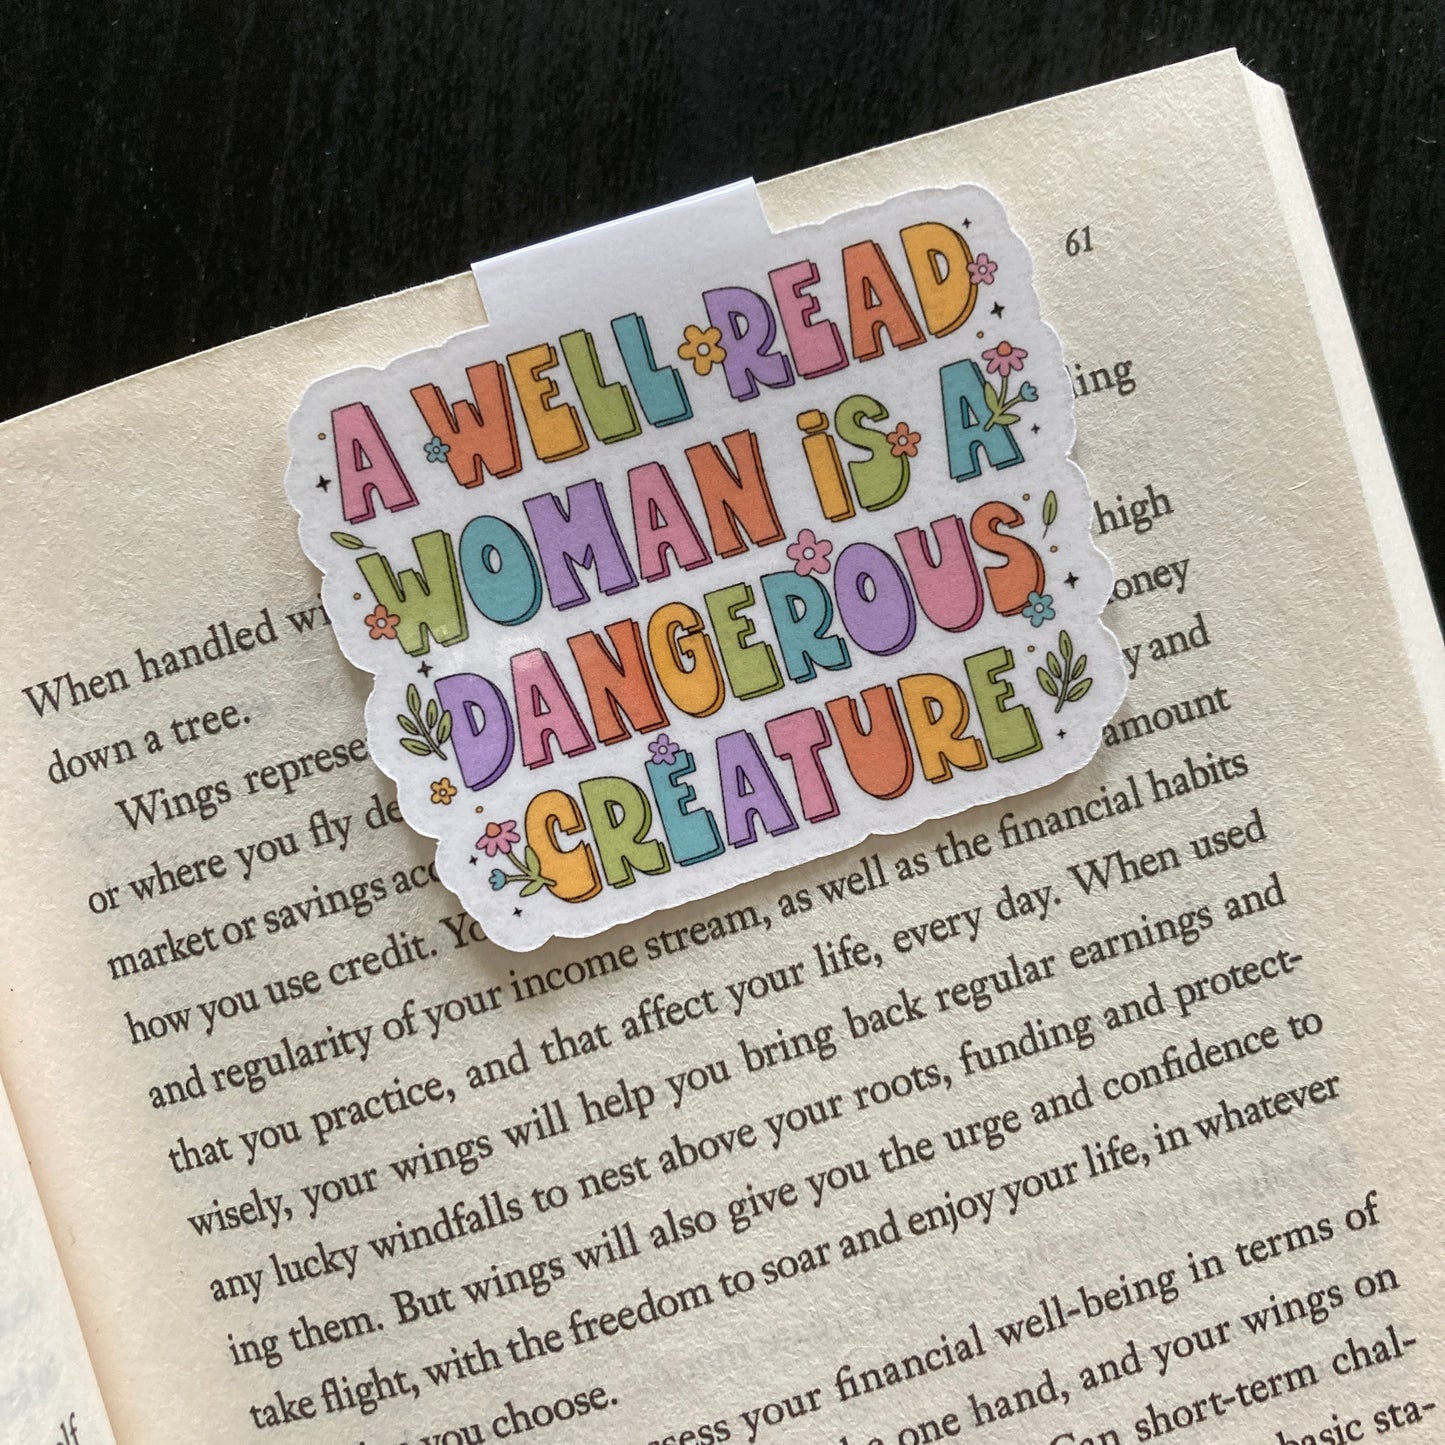 A WELL READ
WOMAN IS A
DANGEROUS
CREATURE
61
ling
When handled
high
down a tree.
oney
Wings represe
y and
or where you fly de
amount
market or savings acc
how you use credit. Yo
and regularity of your income stream, as well as the financial habits
that you practice, and that affect your life, every day. When used
wisely, your wings will help you bring back regular earnings and
any lucky windfalls to nest above your roots, funding and protect-
ing them. But wings will also give you the urge and confidence to
take flight, with the freedom to soar and enjoy your life, in whatever
you choose.
sess your financial well-being in terms of
one hand, and your wings on
Can short-term chal-
basic sta-